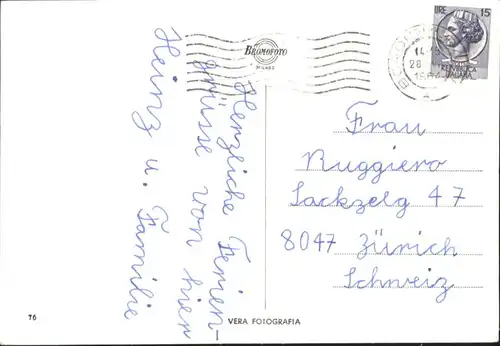 Herzliche Ferien-
grüsse von hier
Heinz u. Familie
BROMOFOTO
MILANO
28
LIRE 15
REPUBBLICA
ITALIANA
Frau
Ruggiero
Sackzelg 47
8047 Zürich
Schweiz
76
VERA FOTOGRAFIA